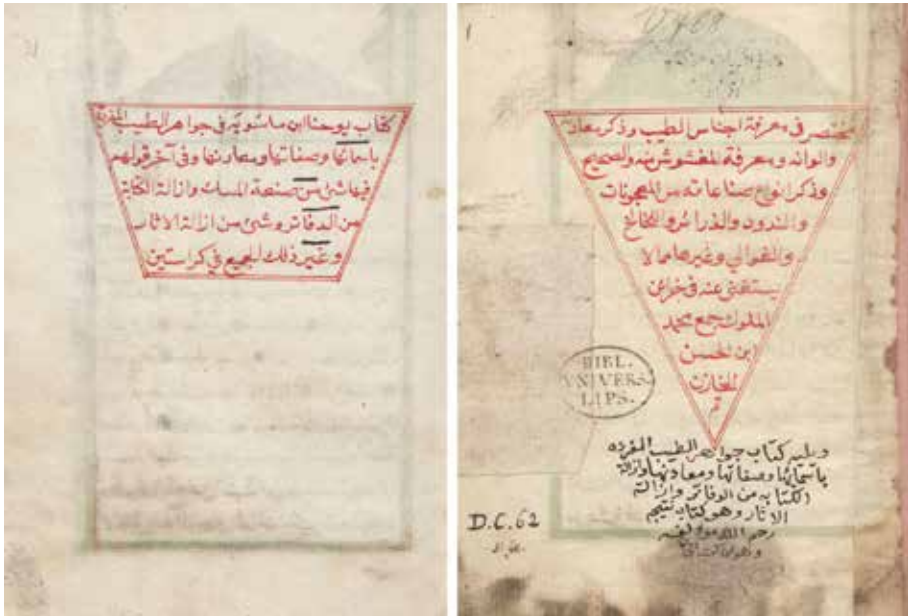 كتاب يوحنا ابن ماسويه في جواهر الطيب المفردة
باسمائها وصفاتها ومعادنها وفي آخر قولهم
فيها شئ من صنعة المسك وازالة الكتابة
من الدفاتر وشئ من ازالة الاثار
وغير ذلك الجميع في كراستين
مختصر في معرفة اجناس الطيب وذكر معادنه
والوانه ومعرفة المغشوش منه والصحيح
وذكر انواع صناعاته من المعجونات
والندود والذرائر والخالخ
والغوالي وغيرها مما لا
يستغنى عنه في خزاين
الملوك جمع محمد
ابن الحسن
الخازن
تم
BIBL.
VNIVERS.
LIPS.
ويليه كتاب جواهر الطيب المفرده
باسمائها وصفاتها ومعادنها وازالة
الكتابه من الدفاتر وازالة
الاثار وهو كتاب
رحم الله
D.C.62